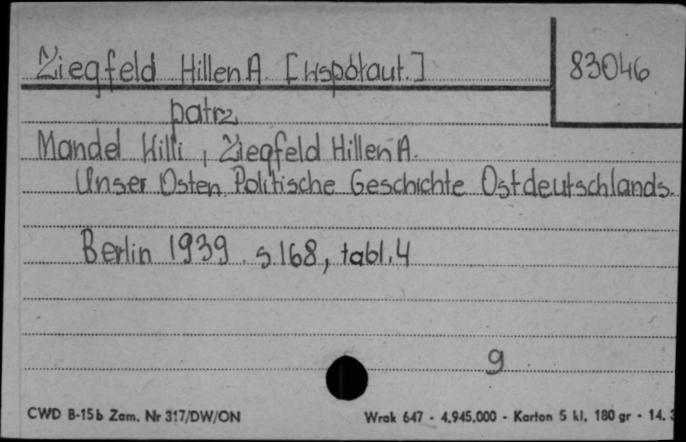 Ziegfeld Hillen A. [współaut.]
83046
patrz
Mandel Hilli, Ziegfeld Hillen A.
Unser Osten Politische Geschichte Ostdeutschlands.
Berlin 1939. s.168, tabl.4
9
CWD B-15b Zam. Nr 317/DW/ON
Wrak 647 - 4.945.000 - Karton 5 kl. 180 gr - 14.